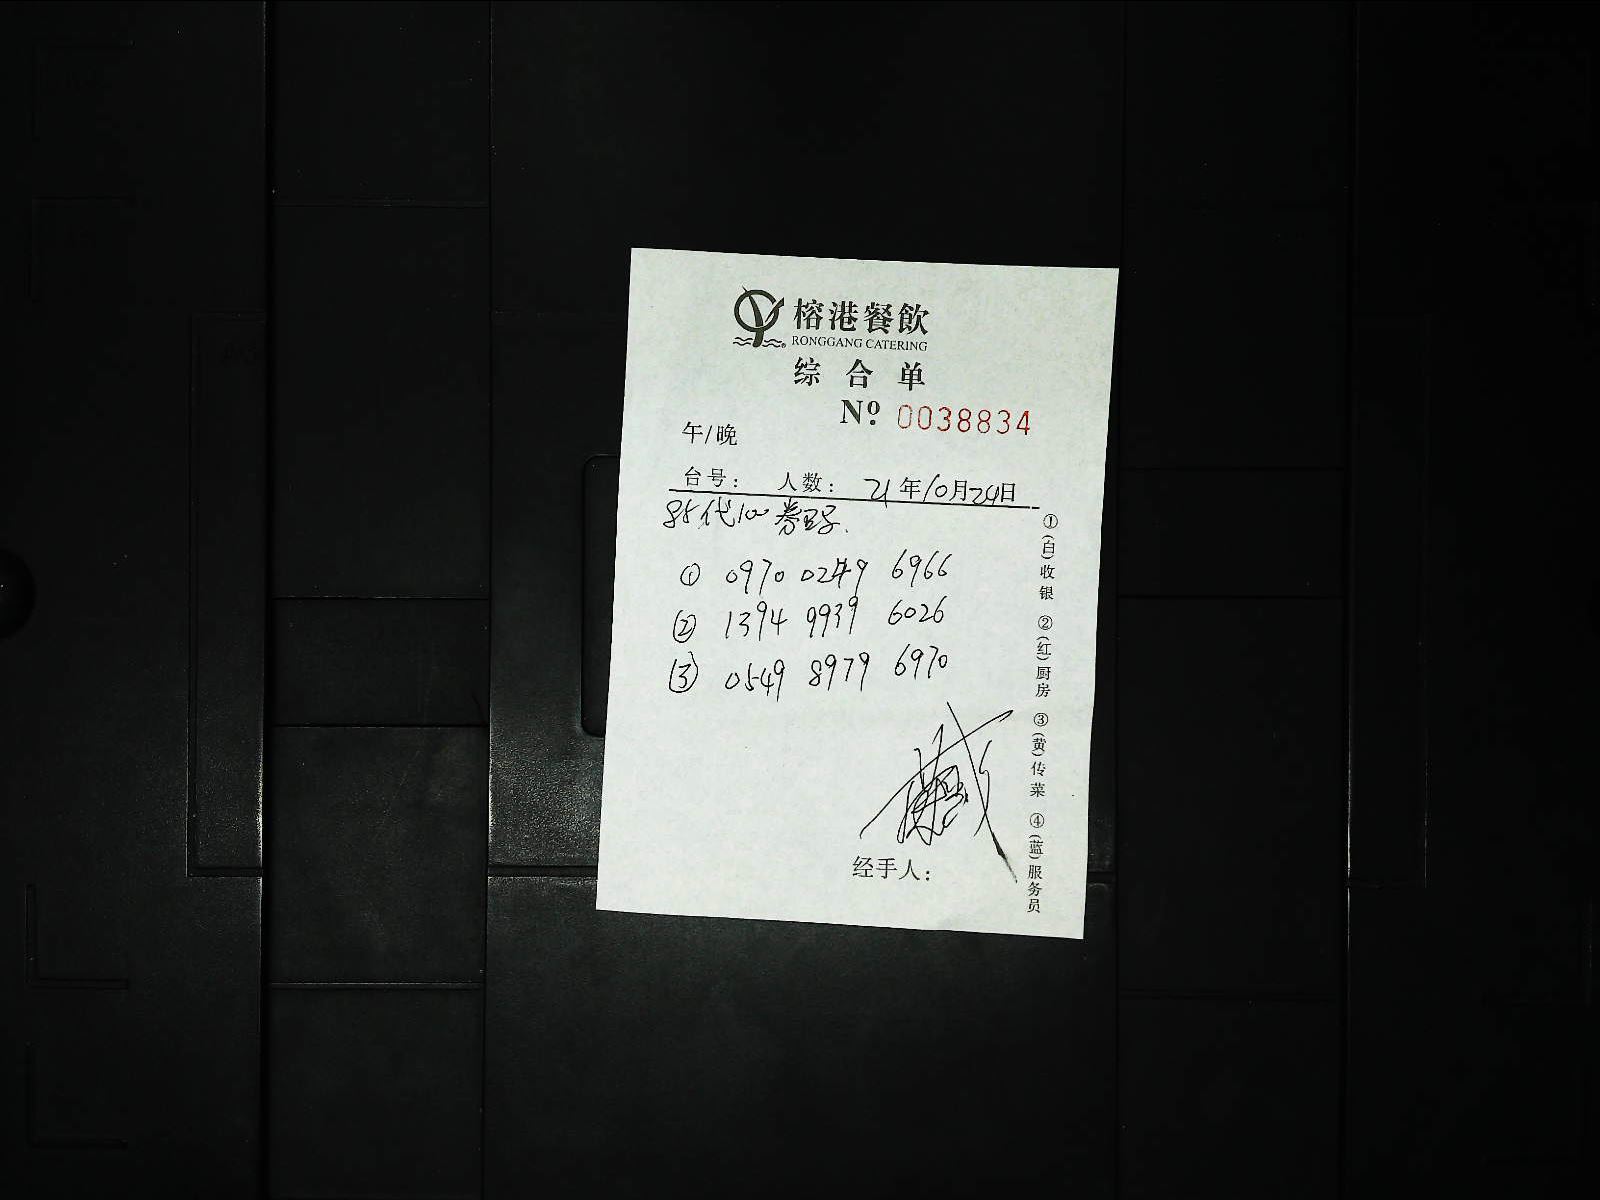 榕港餐飲
RONGGANG CATERING
综合单
№ 0038834
午/晚
台号: 人数: 21年10月24日
85代100券号
① 0970 0249 6966
② 1394 9939 6026
③ 0549 8979 6970
经手人:
①(白)收银 ②(红)厨房 ③(黄)传菜 ④(蓝)服务员